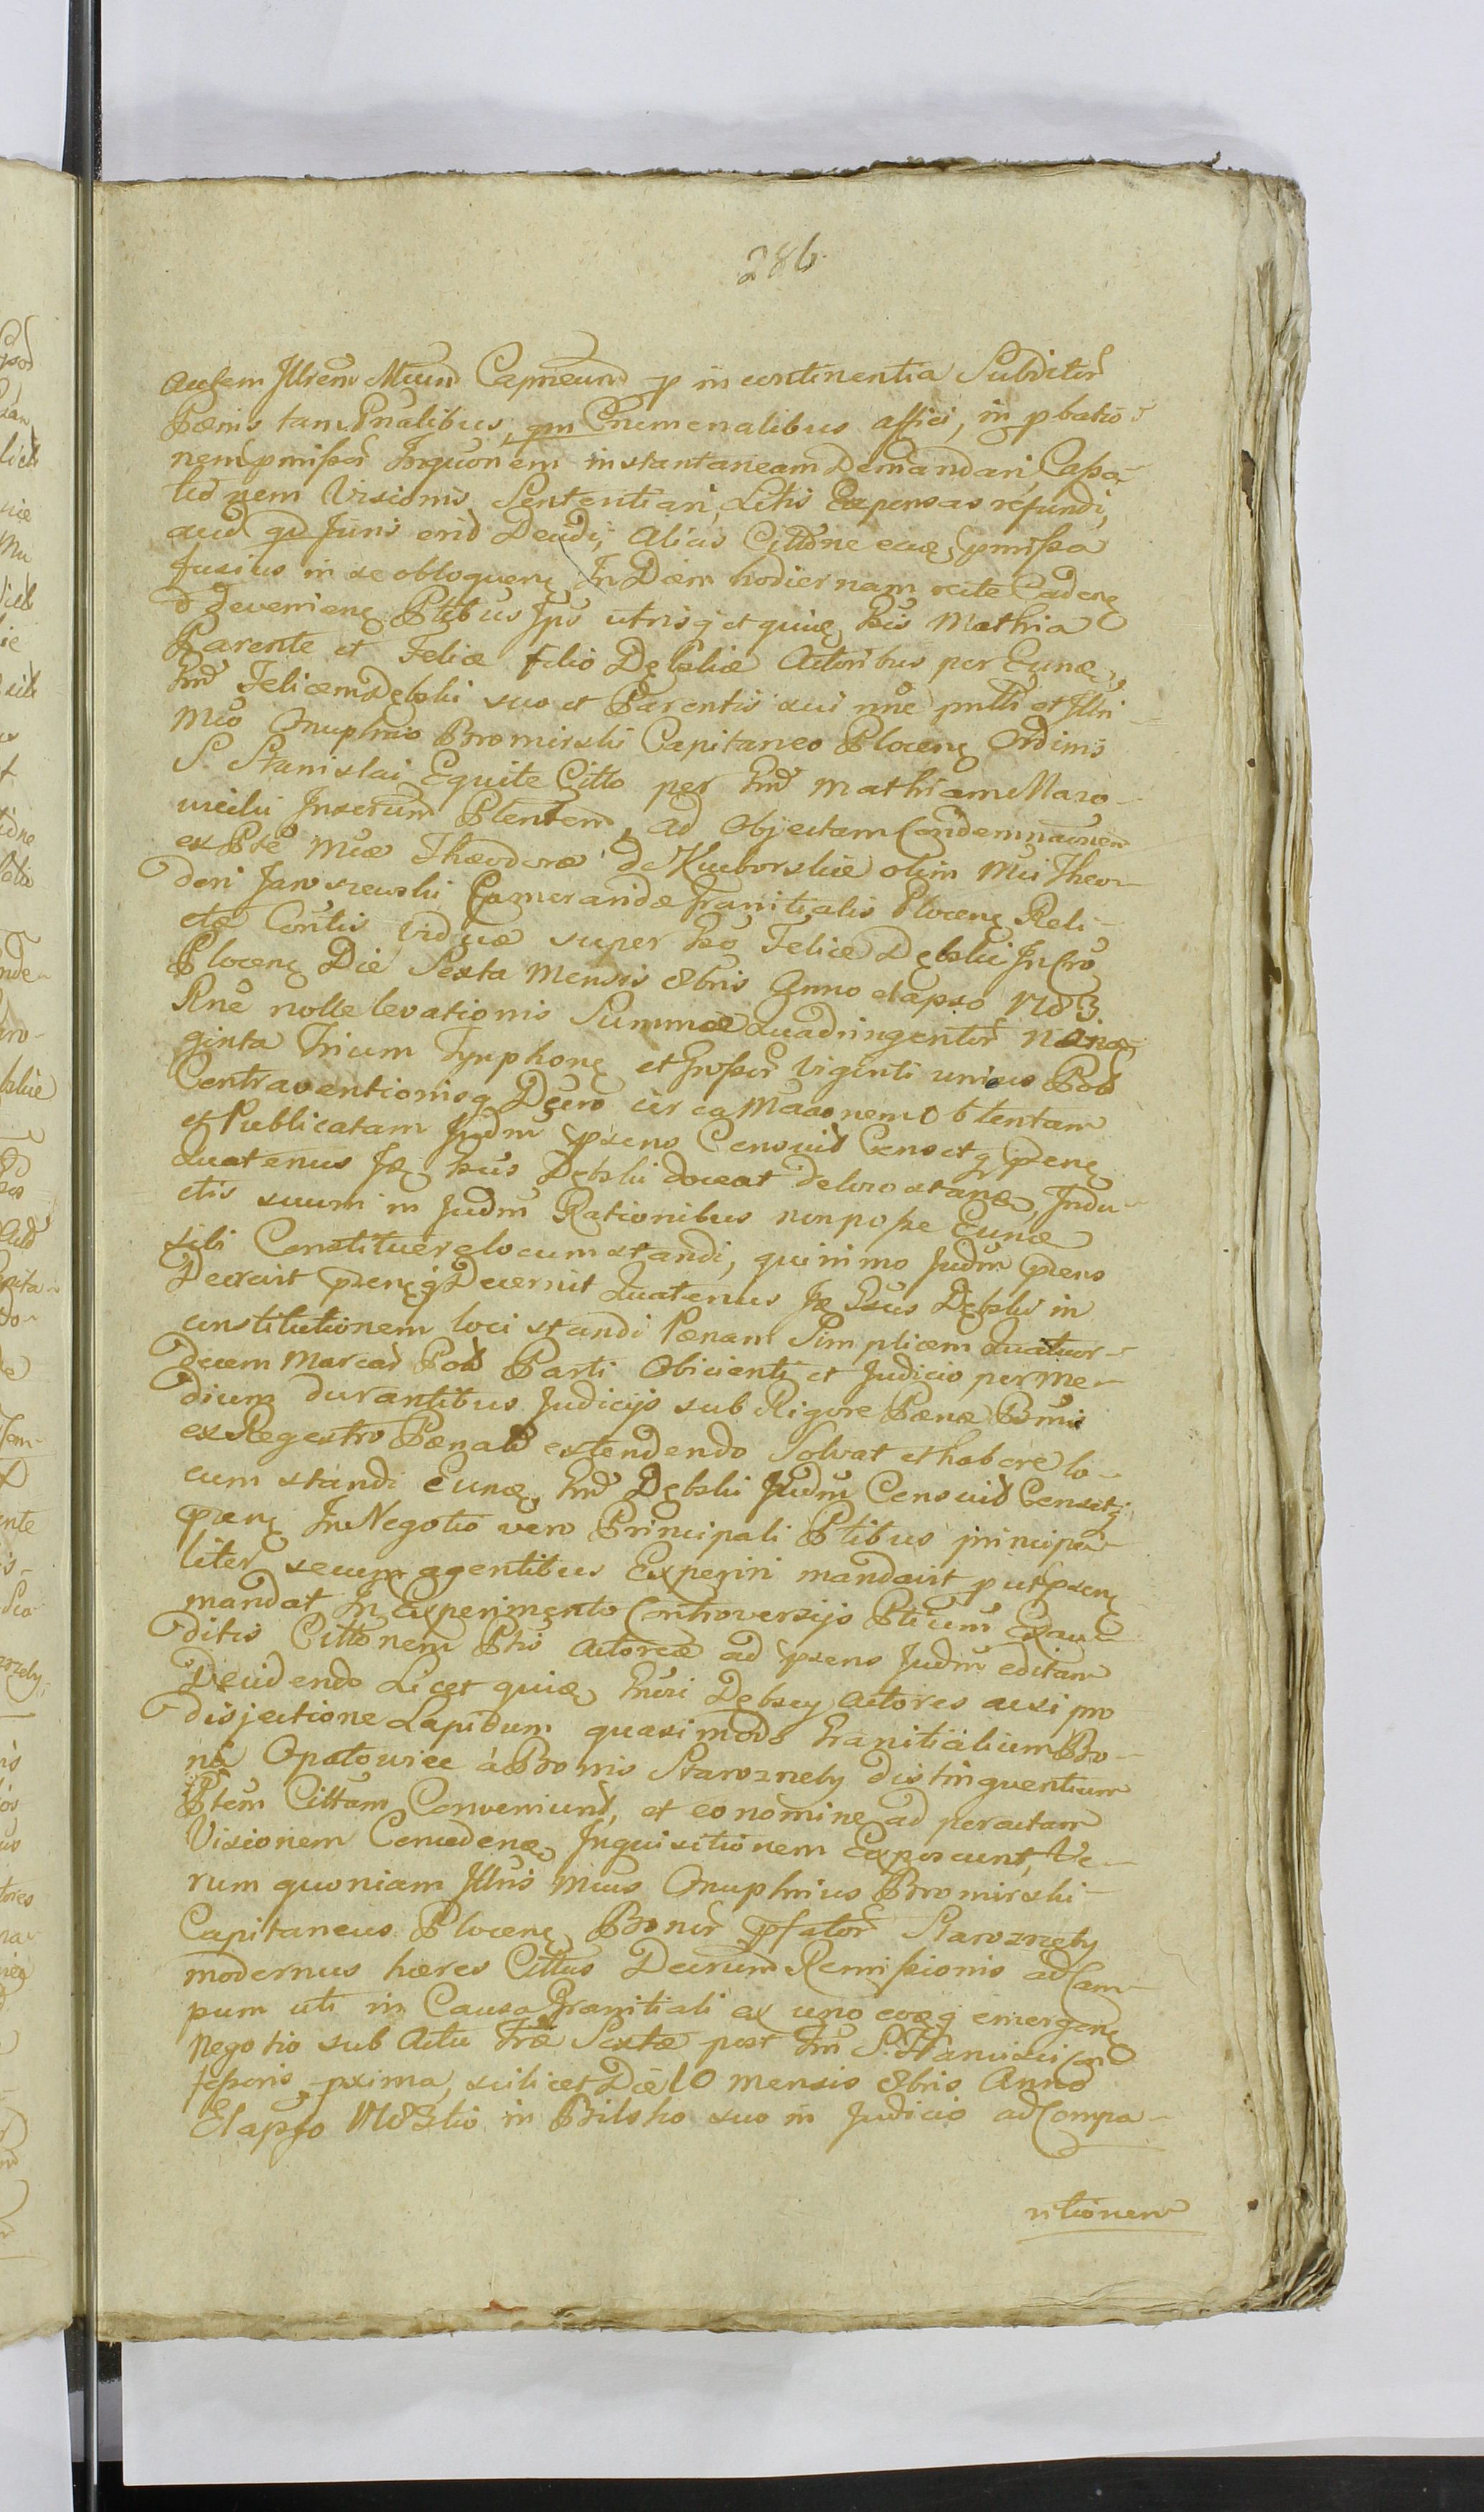 286
autem Illrem Mcum Capneum p in continentia Subditor
Pænis tam Pnalibus, qm Crimenalibus affici, in pbatio
nem pmißor Inquonem instantaneam Demandari, Caßa-
tionem Visionis Sententiari, Litis Expensas refundi,
aud qd Juris erid Decidi, alias Cittõne eaq pmißa
fusius in se obloquenq In Diem hodiernam rite Cadenq
d devenienq Ptibus Ips utrisq et quiq Gsis Mathia
Parente et Felice filio Dębskie Actoribus per Eunq
Gnd Felicem Dębski suo et Parentis sui nñe pntti et Illri
Mco Onuphrio Bromirski Capitaneo Plocenq Ordinis
S. Stanislai Equite Citto per Gnd Mathiam Maro-
wicki Inserum Plentem, ad Objectam Condemnaonem
ex Pte Mcæ Theodoræ de Kucborskie olim Mci Theo-
dori Jaroszewski Camerarido Granitialis Plocenq Reli-
ctæ Contis Viduæ super Gso Felice Dębski In Cro
Plocenq Die Sexta Mensis 8bris Anno elapso 1783
Rne nolle levationis Summæ Quadringentor Nona-
ginta Trium Tynphonq et Großor Viginti unius Pold
Contraventionisq Dcero circa Maaonem Obtentam
et Publicatam Judm psens Censuid Censetq psenq
Quatenus Iq Gsus Dębski doceat de loco stanq, Indu-
ctis suum in Judm Rationibus non poße Eunq
sibi Constituere locum standi, quinimo Judm psens
Decrevit psenqq Decernit Quatenus Iq Gsus Dębski in
constitutionem loci standi Pænam Simplicem Quatuor-
decem Marcar Pold Parti Obicienti et Judicio per Me-
dium durantibus Judicijs sub Rigore Pænæ Bnnis
ex Regestro Pænali extendendo Solvat et habere lo-
cum standi Eunq Gnd Dębski Judm Censuid Censetq
psenq In Negotio vero Principali Ptibus principa-
liter secum agentibus Experiri mandavit put psenq
mandat In Experimento Controversijs Ptium Exau-
ditis Cittonem Ptis Actoreæ ad psens Judm editam
Decidendo Licet quiq Gnri Dębscy Actores acsi pro
disjectione Lapidum quasi modo Granitialium Bo-
na Opatowiec à Bonis Starozreby distinguentium
Ptem Cittam Conveniund, et eo nomine ad peractam
Visionem Concedenq Inquisitionem Exposcunt, Ve-
rum quoniam Illris Mcus Onuphrius Bromirski
Capitaneus Plocenq Bonor pfator Starozreby
modernus hæres Cittus Decrum Remißionis ad Cam-
pum uti in Causa Granitiali ex uno eoqq emergenq
negotio sub Actu Fræ Sextæ post Fm S. Francisci Con
feßoris pxima, scilicet Die 10 mensis 8bris Anno
Elapso 1783tio in Bilsko suo in Judicio ad Compa-
ritionem